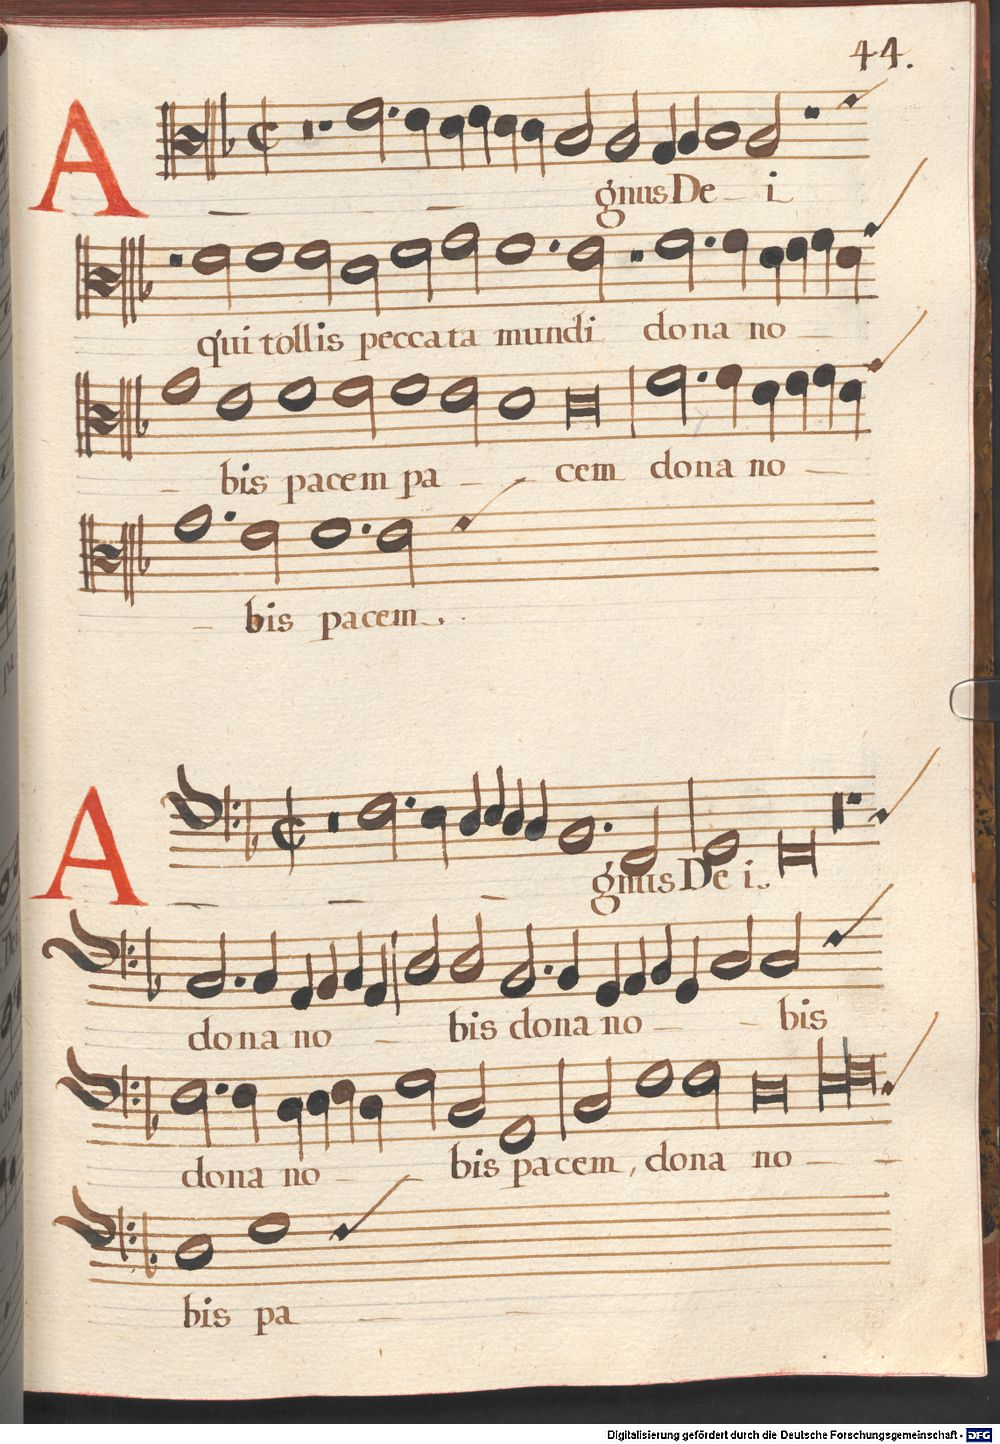 44.
A gnus De i
qui tollis peccata mundi dona no
bis pacem pa cem dona no
bis pacem.
A gnus De i
dona no bis dona no bis
dona no bis pacem, dona no
bis pa
Digitalisierung gefördert durch die Deutsche Forschungsgemeinschaft - DFG